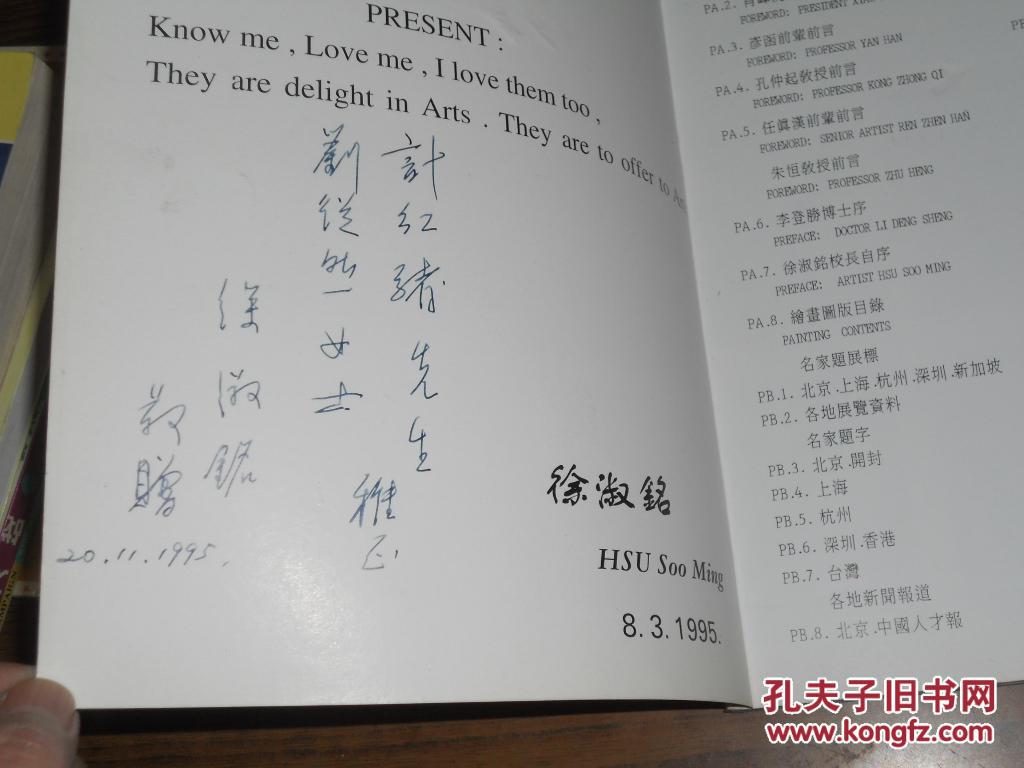 PRESENT :
Know me , Love me , I love them too ,
They are delight in Arts . They are to offer to
計紅緒先生
劉從一女士
雅正
徐淑銘
敬贈
20.11.1995.
徐淑銘
HSU Soo Ming
8.3.1995.
PA.2.
FOREWORD: PRESIDENT
PA.3. 彥函前輩前言
FOREWORD: PROFESSOR YAN HAN
PA.4. 孔仲起敎授前言
FOREWORD: PROFESSOR KONG ZHONG QI
PA.5. 任眞漢前輩前言
FOREWORD: SENIOR ARTIST REN ZHEN HAN
朱恒敎授前言
FOREWORD: PROFESSOR ZHU HENG
PA.6. 李登勝博士序
PREFACE: DOCTOR LI DENG SHENG
PA.7. 徐淑銘校長自序
PREFACE: ARTIST HSU SOO MING
PA.8. 繪畫圖版目錄
PAINTING CONTENTS
名家題展標
PB.1. 北京.上海.杭州.深圳.新加坡
PB.2. 各地展覽資料
名家題字
PB.3. 北京.開封
PB.4. 上海
PB.5. 杭州
PB.6. 深圳.香港
PB.7. 台灣
各地新聞報道
PB.8. 北京.中國人才報
孔夫子旧书网
www.kongfz.com